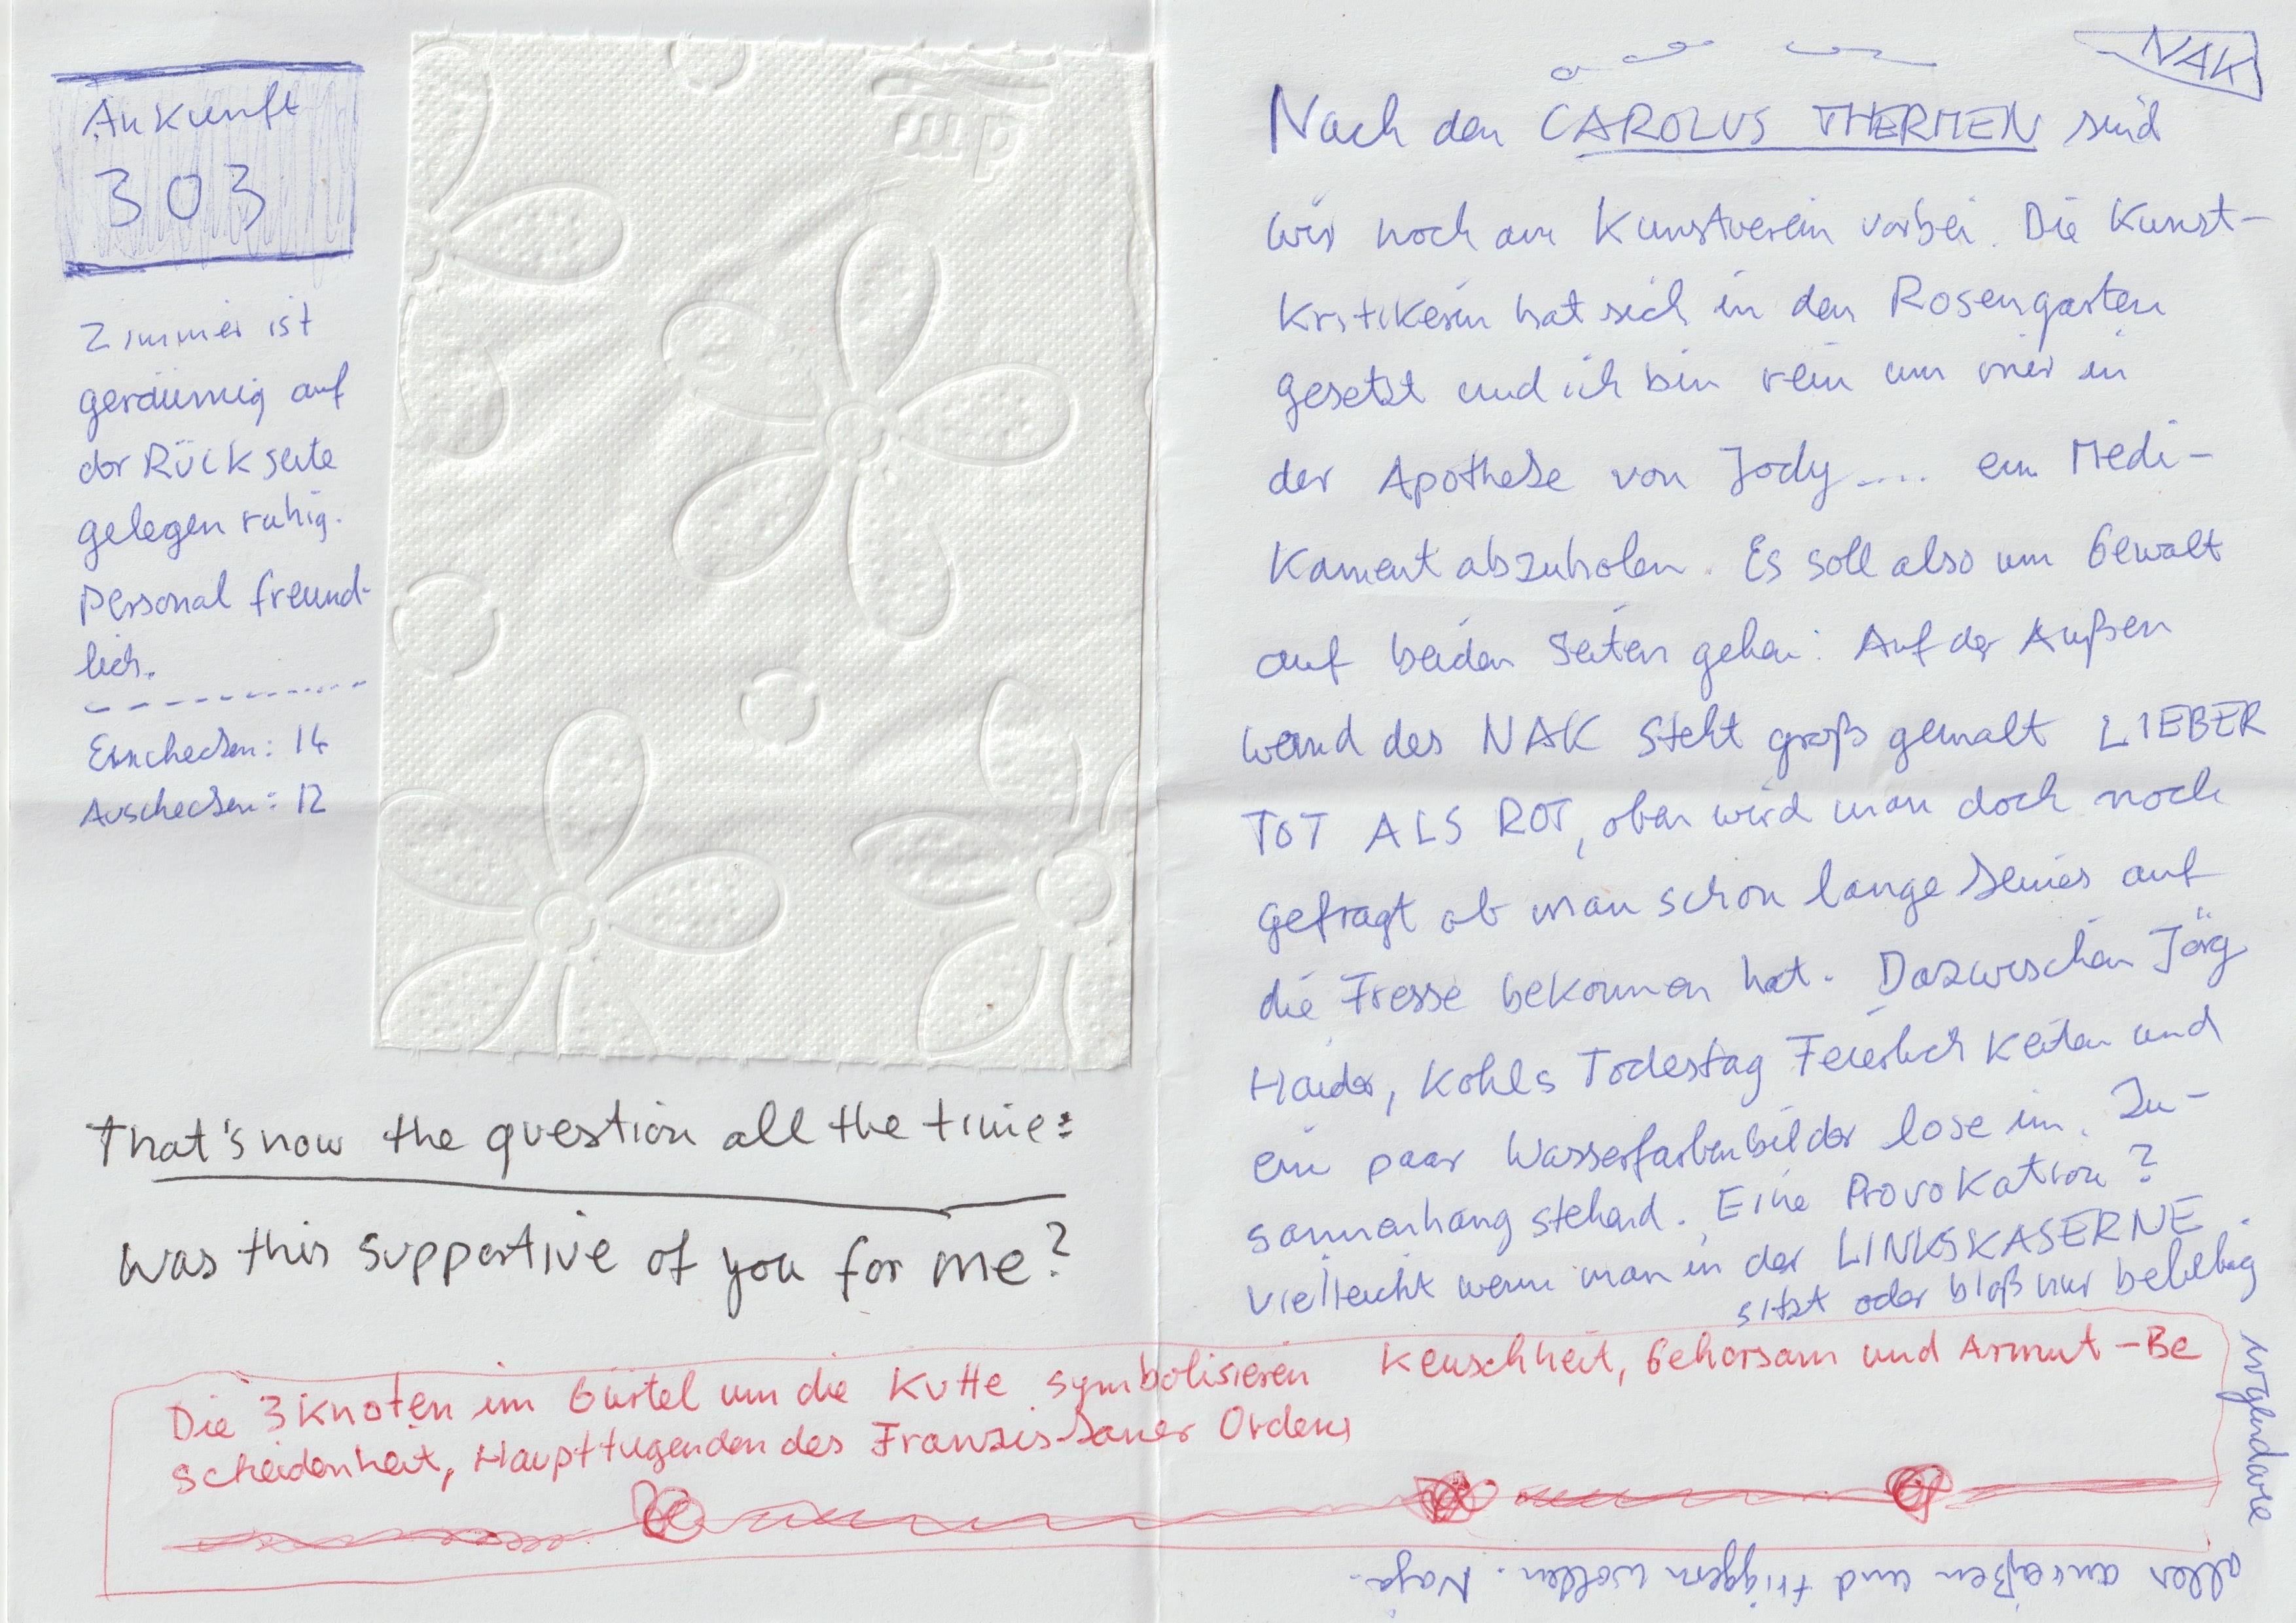 Ankunft
303
Zimmer ist
geräumig auf
der Rückseite
gelegen ruhig.
Personal freund-
lich.
Einchecken: 14
Auschecken: 12
That's now the question all the time:
Was this supportive of you for me?
NAK
Nach den CAROLUS THERMEN sind
wir noch am Kunstverein vorbei. Die Kunst-
kritikerin hat sich in den Rosengarten
gesetzt und ich bin rein um mir in
der Apotheke von Jody .... ein Medi-
kament abzuholen. Es soll also um Gewalt
auf beiden Seiten gehen: Auf der Außen
wand des NAK steht groß gemalt LIEBER
TOT ALS ROT, oben wird man doch noch
gefragt ob man schon lange keines auf
die Fresse bekommen hat. Dazwischen Jörg
Haider, Kohls Todestag Feierlichkeiten und
ein paar Wasserfarbenbilder lose im. Zu-
sammenhang stehend. Eine Provokation?
Vielleicht wenn man in der LINKSKASERNE
sitzt oder bloß nur beliebig
irgendwie
alles anreißen und triggern wollen. Naja.
Die 3 Knoten im Gürtel um die Kutte symbolisieren Keuschheit, Gehorsam und Armut - Be
scheidenheit, Haupttugenden des Franziskaner Ordens